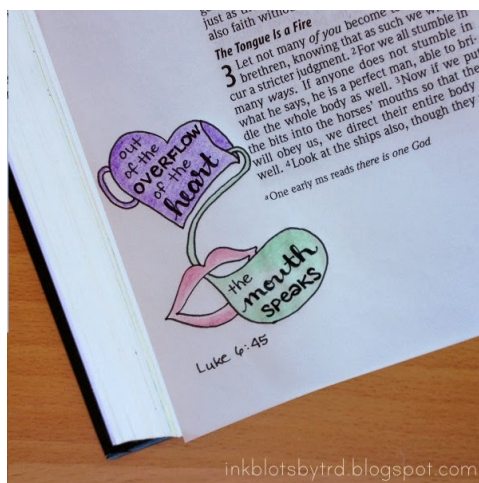 just as the
also faith withou
The Tongue Is a Fire
3 Let not many of you become t
brethren, knowing that as such we w
cur a stricter judgment. 2For we all stumble in
many ways. If anyone does not stumble in
what he says, he is a perfect man, able to bri-
dle the whole body as well. 3Now if we put
the bits into the horses' mouths so that the
will obey us, we direct their entire body
well. 4Look at the ships also, though they
aOne early ms reads there is one God
out
of the
OVERFLOW
of the
heart
the
mouth
SPEAKS
Luke 6:45
inkblotsbytrd.blogspot.com